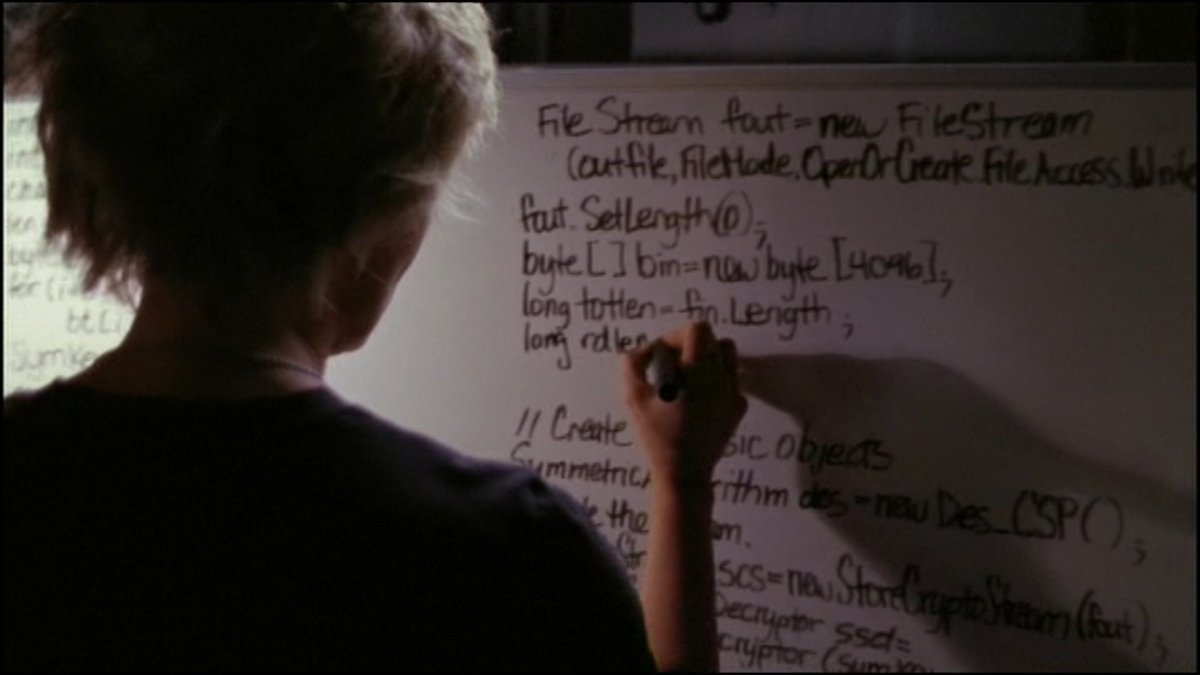 for (i
bt[i
SymKe
File Stream fout = new FileStream
(outfile, FileMode.OpenOrCreate.File.Access.Write
fout.SetLength(0);
byte[] bin = new byte[4096];
long totlen = fin.Length;
long rdlen
// Create sic objects
Symmetric rithm des = new Des_CSP();
the m.
scs = new StoreCryptoStream(fout);
Decryptor ssd =
cryptor (symkey